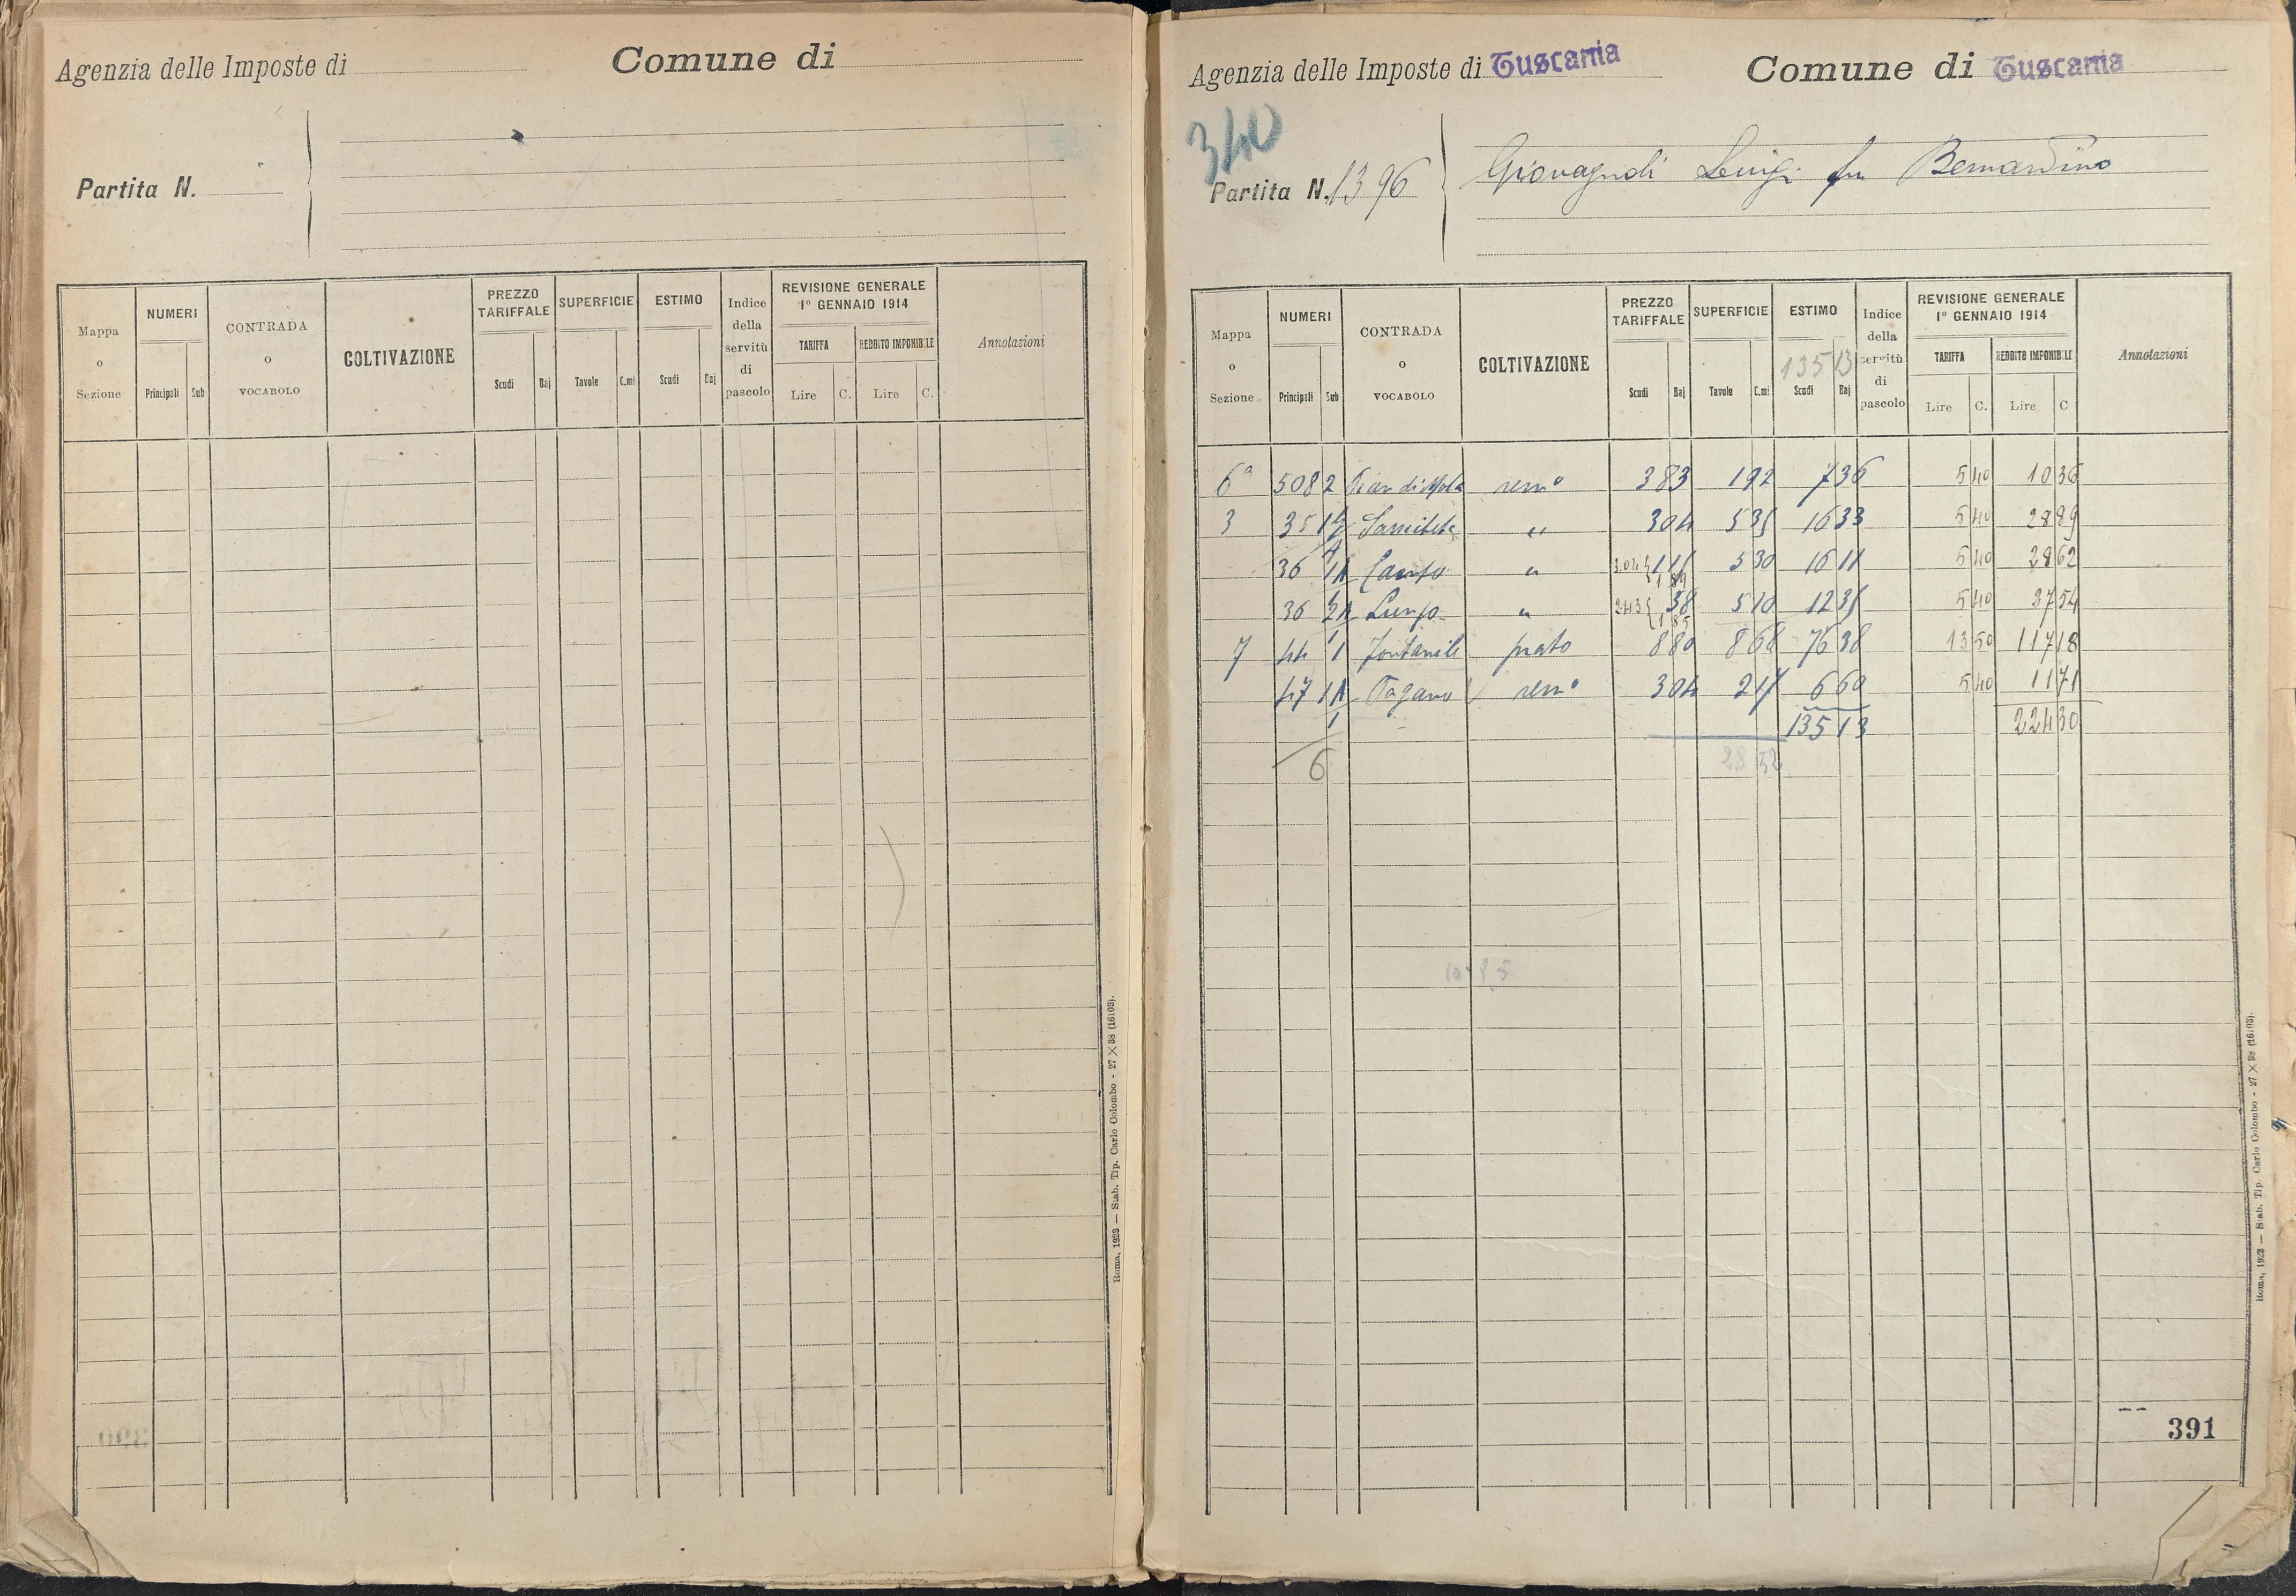 Agenzia delle Imposte di
Comune di
Partita N.
Mappa o Sezione
NUMERI
Principali
Sub
CONTRADA o VOCABOLO
COLTIVAZIONE
PREZZO TARIFFALE
Scudi
Baj
SUPERFICIE
Tavole
C.mi
ESTIMO
Scudi
Baj
Indice della servitù di pascolo
REVISIONE GENERALE
1° GENNAIO 1914
TARIFFA
REDDITO IMPONIBILE
Lire
C.
Lire
C.
Annotazioni
Roma, 1923 — Stab. Tip. Carlo Colombo - 27 × 38 (16103).
390
Agenzia delle Imposte di Tuscania
Comune di Tuscania
340
Partita N. 1396
Giovagnoli Luigi fu Bernardino
Mappa o Sezione
NUMERI
Principali
Sub
CONTRADA o VOCABOLO
COLTIVAZIONE
PREZZO TARIFFALE
Scudi
Baj
SUPERFICIE
Tavole
C.mi
ESTIMO
135 13
Scudi
Baj
Indice della servitù di pascolo
REVISIONE GENERALE
1° GENNAIO 1914
TARIFFA
REDDITO IMPONIBILE
Lire
C.
Lire
C
Annotazioni
6ª 508 2 Pian di Mola semº 3 83 1 92 7 36 5 40 10 36
3 35 „ 3 04 5 35 16 33 5 40 28 89
36 Campo „ 5 30 16 11 5 40 28 62
36 Lungo „ 5 10 12 35 5 40 27 54
7 44 1 Fontanile prato 8 80 8 68 76 38 13 50 117 18
47 1A Pagano semº 3 04 2 17 6 60 5 40 11 71
1 135 13 224 30
6 28 52
391
Roma, 1923 — Stab. Tip. Carlo Colombo - 27 × 38 (16103).